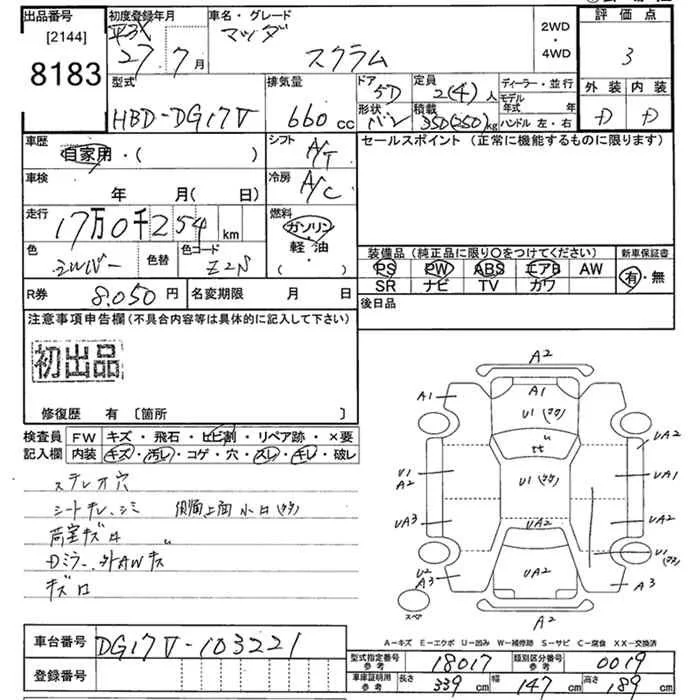 出品番号
[2144]
8183
初度登録年月
27年7月
車名・グレード
マツダ
スクラム
2WD
・
4WD
評価点
3
外装 内装
D D
型式
HBD-DG17V
排気量
660cc
ドア
5D
形状
バン
定員
2(4)人
積載
350(250)kg
ディーラー・並行
モデル年式 年
ハンドル 左・右
車歴
自家用・( )
シフト
A/T
セールスポイント (正常に機能するものに限ります)
車検
年 月(日)
冷房
A/C
走行
17万0千254km
燃料
ガソリン
軽油
( ・ )
色
シルバー
色替
色コード
Z2S
装備品 (純正品に限り○をつけてください)
新車保証書
PS PW ABS エアB AW
有・無
SR ナビ TV カワ
R券
8.050円
名変期限 月 日
後日品
注意事項申告欄 (不具合内容等は具体的に記入して下さい)
初出品
修復歴 有 〔箇所 〕
検査員
記入欄
FW キズ・飛石・ヒビ割・リペア跡・×要
内装 キズ・汚レ・コゲ・穴・スレ・キレ・破レ
ステレオ穴
シートキレ、シミ
荷室キズ
Dミラー
キズ
A2
A1
A1
U1
U1
A2
UA2
UA1
U1
A2
UA3
UA2
UA2
U1
U2
A3
UA2
A3
A2
スペア
A-キズ E-エクボ U-凹み W-補修跡 S-サビ C-腐食 XX-交換済
車台番号
DG17V-103221
登録番号
型式指定番号
参考
18017
類別区分番号
参考
0019
車庫証明用
参考
長さ
339cm
幅
147cm
高さ
189cm